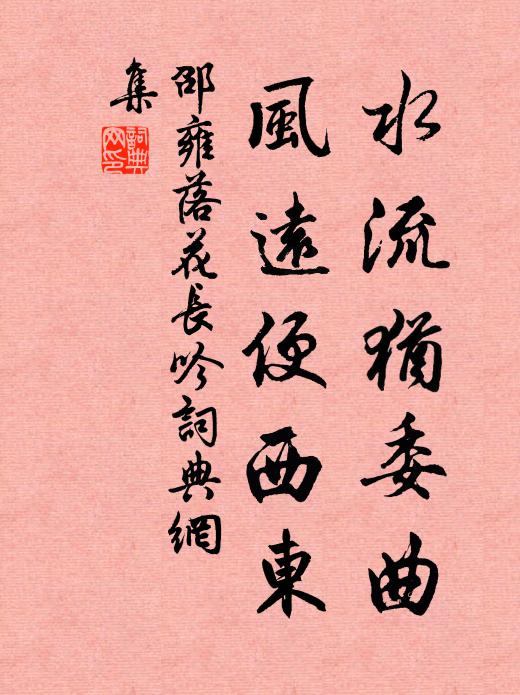 水流猶委曲
風遠便西東
邵雍落花長吟詞典網
集
詞典網印